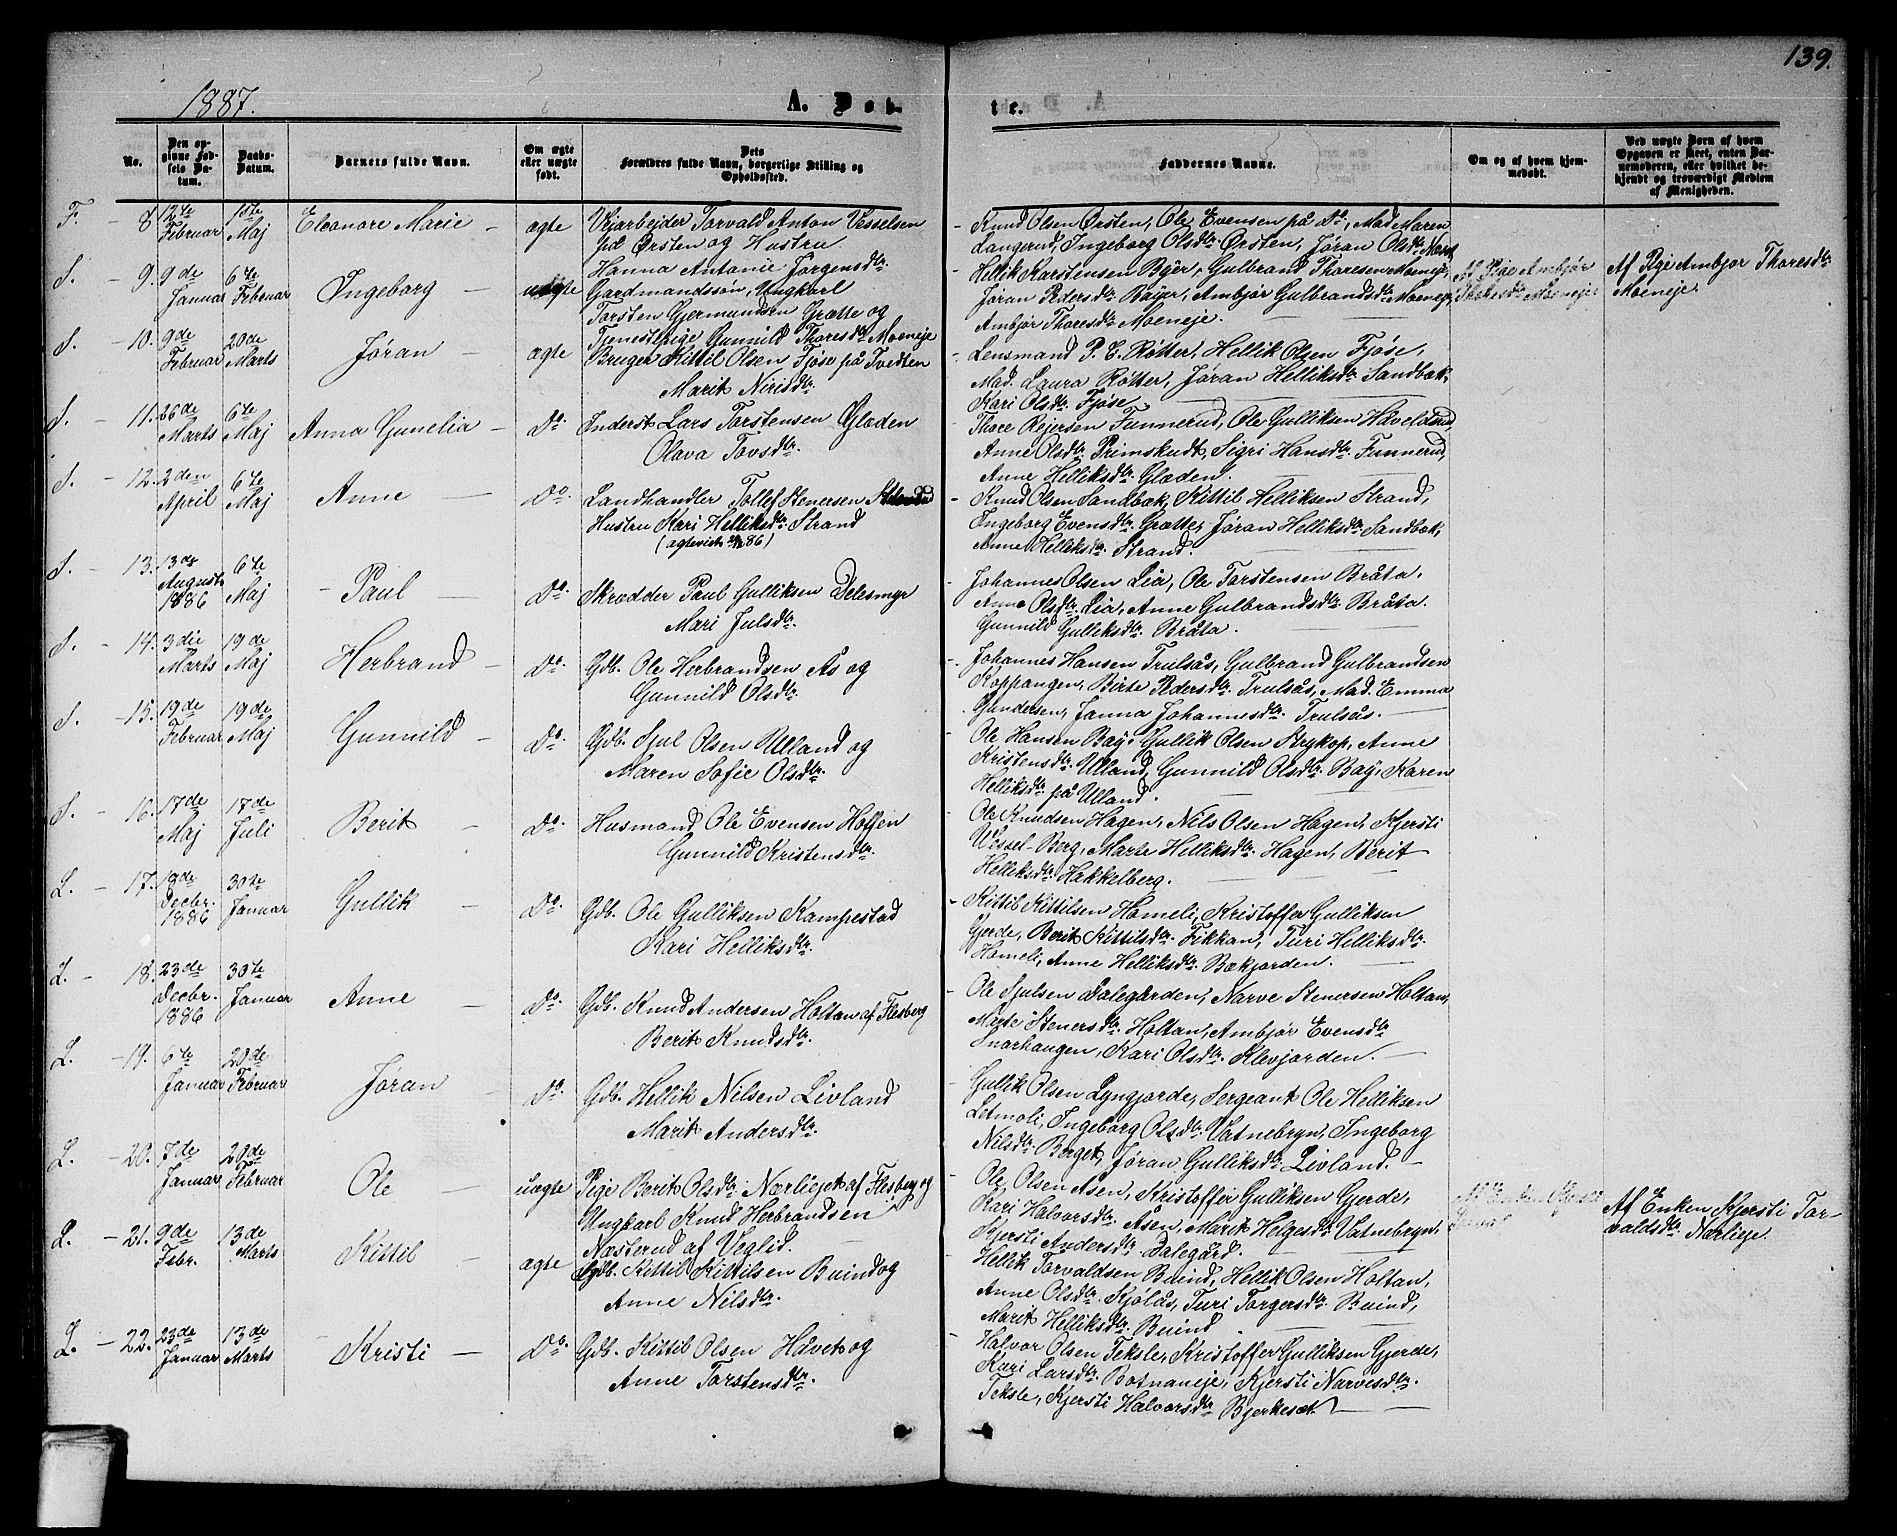 139.
1887.
A. Døb-
te.
No.
Den opgivne Fødsels Datum.
Daabs-Datum.
Barnets fulde Navn.
Om ægte eller uægte født.
Dets Forældres fulde Navn, borgerlige Stilling og Opholdssted.
Faddernes Navne.
Om og af hvem hjemmedøbt.
Ved uægte Børn af hvem Opgaven er skeet, enten Barnemoderen, eller hvilket bekjendt og troværdigt Medlem af Menigheden.
F - 8. 12te Februar 15te Maj Eleonore Marie - ægte
Vejarbejder Torvald Anton Vesselsen
Ørsten og Hustru
Hanna Antonie Jørgensdtr.
- Knud Olsen Ørsten, Ole Evensen på Do, Mad. Maren
Langerud, Ingeborg Olsdtr. Ørsten, Jøran Olsdtr.
S. - 9. 9de Januar 6te Februar Ingeborg - uægte
Gardmandssøn, Ungkarl
Torsten Gjermundsen Grætte og
Tjenestepige Gunnild Thoresdtr. Moeneje
- Hellik Karstensen Bajer, Gulbrand Thoresen Moeneje,
Jøran Pedersdtr. Bajer, Ambjør Gulbrandsdtr. Moeneje,
Ambjør Thoresdtr. Moeneje.
Af Pige Ambjør
Thoresdtr. Moeneje.
Af Pige Ambjør Thoresdtr.
Moeneje.
S. - 10. 9de Februar 20de Marts Jøran - ægte
Bruger Kittil Olsen Fjøse på Tvedten
Marit Nirisdtr.
- Lensmand P. C. Røtter, Hellik Olsen Fjøse,
Mad. Laura Røtter, Jøran Helliksdtr. Sandbæk,
Kari Olsdtr. Fjøse
S. - 11. 26de Marts 6te Maj Anna Gunelia - Do.
Inderst Lars Torstensen Glæden
Olava Tovsdtr.
- Thore Rejersen Funnerud, Ole Gulliksen Håvelsrud,
Anne Olsdtr. Primskudt, Sigri Hansdtr. Funnerud,
Anne Helliksdtr. Glæden.
S. - 12. 2den April 6te Maj Anne - Do.
Landhandler Tollef Stenersen Strand
Hustru Kari Helliksdtr. Strand
- Knud Olsen Sandbæk, Kittil Helliksen Strand,
Ingeborg Evensdtr. Grætte, Jøran Helliksdtr. Sandbæk,
Anne Helliksdtr. Strand.
S. - 13. 13de August 1886 6te Maj - Paul - Do.
Skrædder Paul Gulliksen Delesmyr
Mari Julsdtr.
- Johannes Olsen Lia, Ole Torstensen Bråta.
Anne Olsdtr. Lia, Anne Gulbrandsdtr. Bråta.
Gunnild Gulliksdtr. Bråta.
S. - 14. 3die Marts 19de Maj Herbrand - Do.
Gdb. Ole Herbrandsen Ås og
Gunnild Olsdtr.
- Johannes Hansen Trulsås, Gulbrand Gulbrandsen
Koppangen, Birte Pedersdtr. Trulsås, Mad. Emma
Gundersen, Janna Johannesdtr. Trulsås.
S. - 15. 19de Februar 19de Maj Gunnild - Do.
Gdb. Sjul Olsen Ulland og
Maren Sofie Olsdtr.
- Ole Hansen Baÿ, Gullik Olsen Strykop, Anne
Kristensdtr. Ulland, Gunnild Olsdtr. Baÿ, Karen
Helliksdtr. på Ulland.
S. - 16. 17de Maj 17de Juli Berit - Do.
Husmand Ole Evensen Hoffen
Gunnild Kristensdtr.
- Ole Knudsen Hagen, Nils Olsen Hagen, Kjersti
Wessel-Berg, Marte Helliksdtr. Hagen, Berit
Helliksdtr. Hakkelberg.
L. - 17. 18de Decbr. 1886 30te Januar Gullik - Do.
Gdb. Ole Gulliksen Kampestad
Kari Helliksdtr.
- Kittil Kittilsen Hameli, Kristoffer Gulliksen
Gjerde, Berit Kittilsdtr. Fikkan, Turi Helliksdtr.
Hameli, Anne Helliksdtr. Bækjorden.
L. - 18. 23de Decbr. 1886 30te Januar Anne - Do.
Gdb. Knud Andersen Holtan af Flesberg
Berit Knudsdtr.
Ole Sjulsen Dalegården, Narve Stenersen Holtan,
Marte Stenersdtr. Holtan, Ambjør Evensdtr.
Snarhaugen, Kari Olsdtr. Klevjorden.
L. - 19. 6te Januar 20de Februar Jøran - Do.
Gdb. Hellik Nilsen Livland
Marit Andersdtr.
- Gullik Olsen Lyngjorde, Sergeant Ole Helliksen
Letmoli, Ingeborg Olsdtr. Vatnebryn, Ingeborg
Nilsdtr. Berget, Jøran Gulliksdtr. Livland.
L. - 20. 7de Januar 20de Februar Ole - uægte
Pige Berit Olsdtr. Nærliejet af Flesberg og
Ungkarl Knud Herbrandsen
Næsterud af Veglid.
- Ole Olsen Åsen, Kristoffer Gulliksen Gjerde,
Kari Halvorsdtr. Åsen, Marit Helgesdtr. Vatnebryn,
Kjersti Andersdtr. Dalegård.
Af Enken Kjersti Tor-
valdsdtr. Nærlieje.
L. - 21. 9de Febr. 13de Marts Kittil - ægte
Gdb. Kittil Kittilsen Buind og
Anne Nilsdtr.
- Hellik Torvaldsen Buind, Hellik Olsen Holtan,
Anne Olsdtr. Kjølås, Turi Torgersdtr. Buind,
Marit Helliksdtr. Buind.
L. - 22. 23de Januar 13de Marts Kristi - Do.
Gdb. Kittil Olsen Håvet og
Anne Torstensdtr.
- Halvor Olsen Teksle, Kristoffer Gulliksen Gjerde,
Kari Larsdtr. Botnaneje, Kjersti Narvesdtr.
Teksle, Kjersti Halvorsdtr. Bjerkesæt.